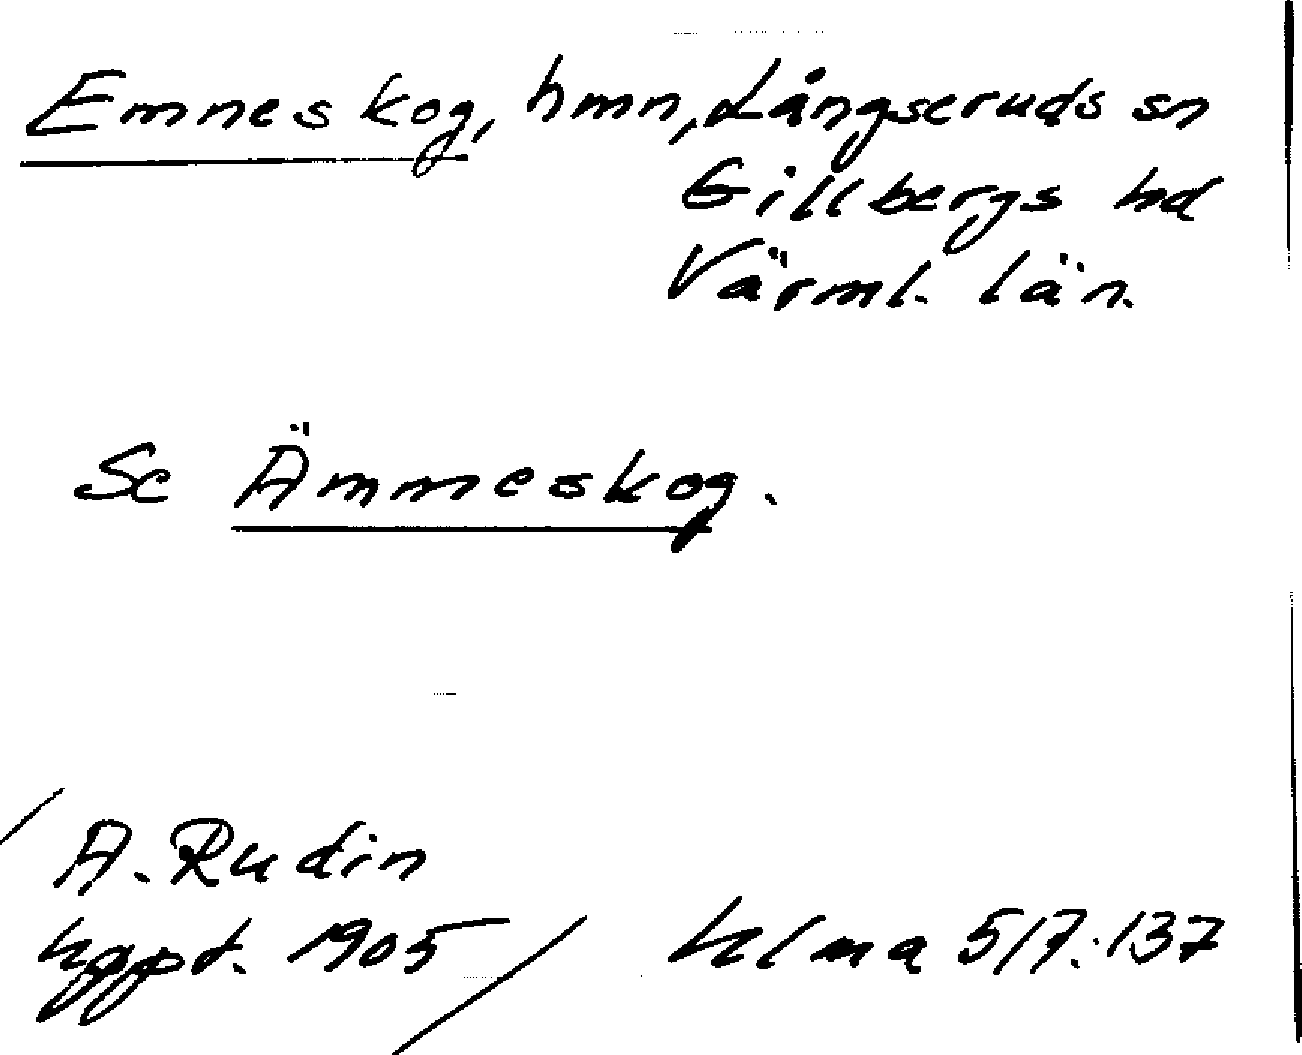 Emneskog, hmn, Långseruds sn
Gillbergs hd
Värml. län.
Se Ämmeskog.
A. Rudin
uppt. 1905 / Ulma 517:137